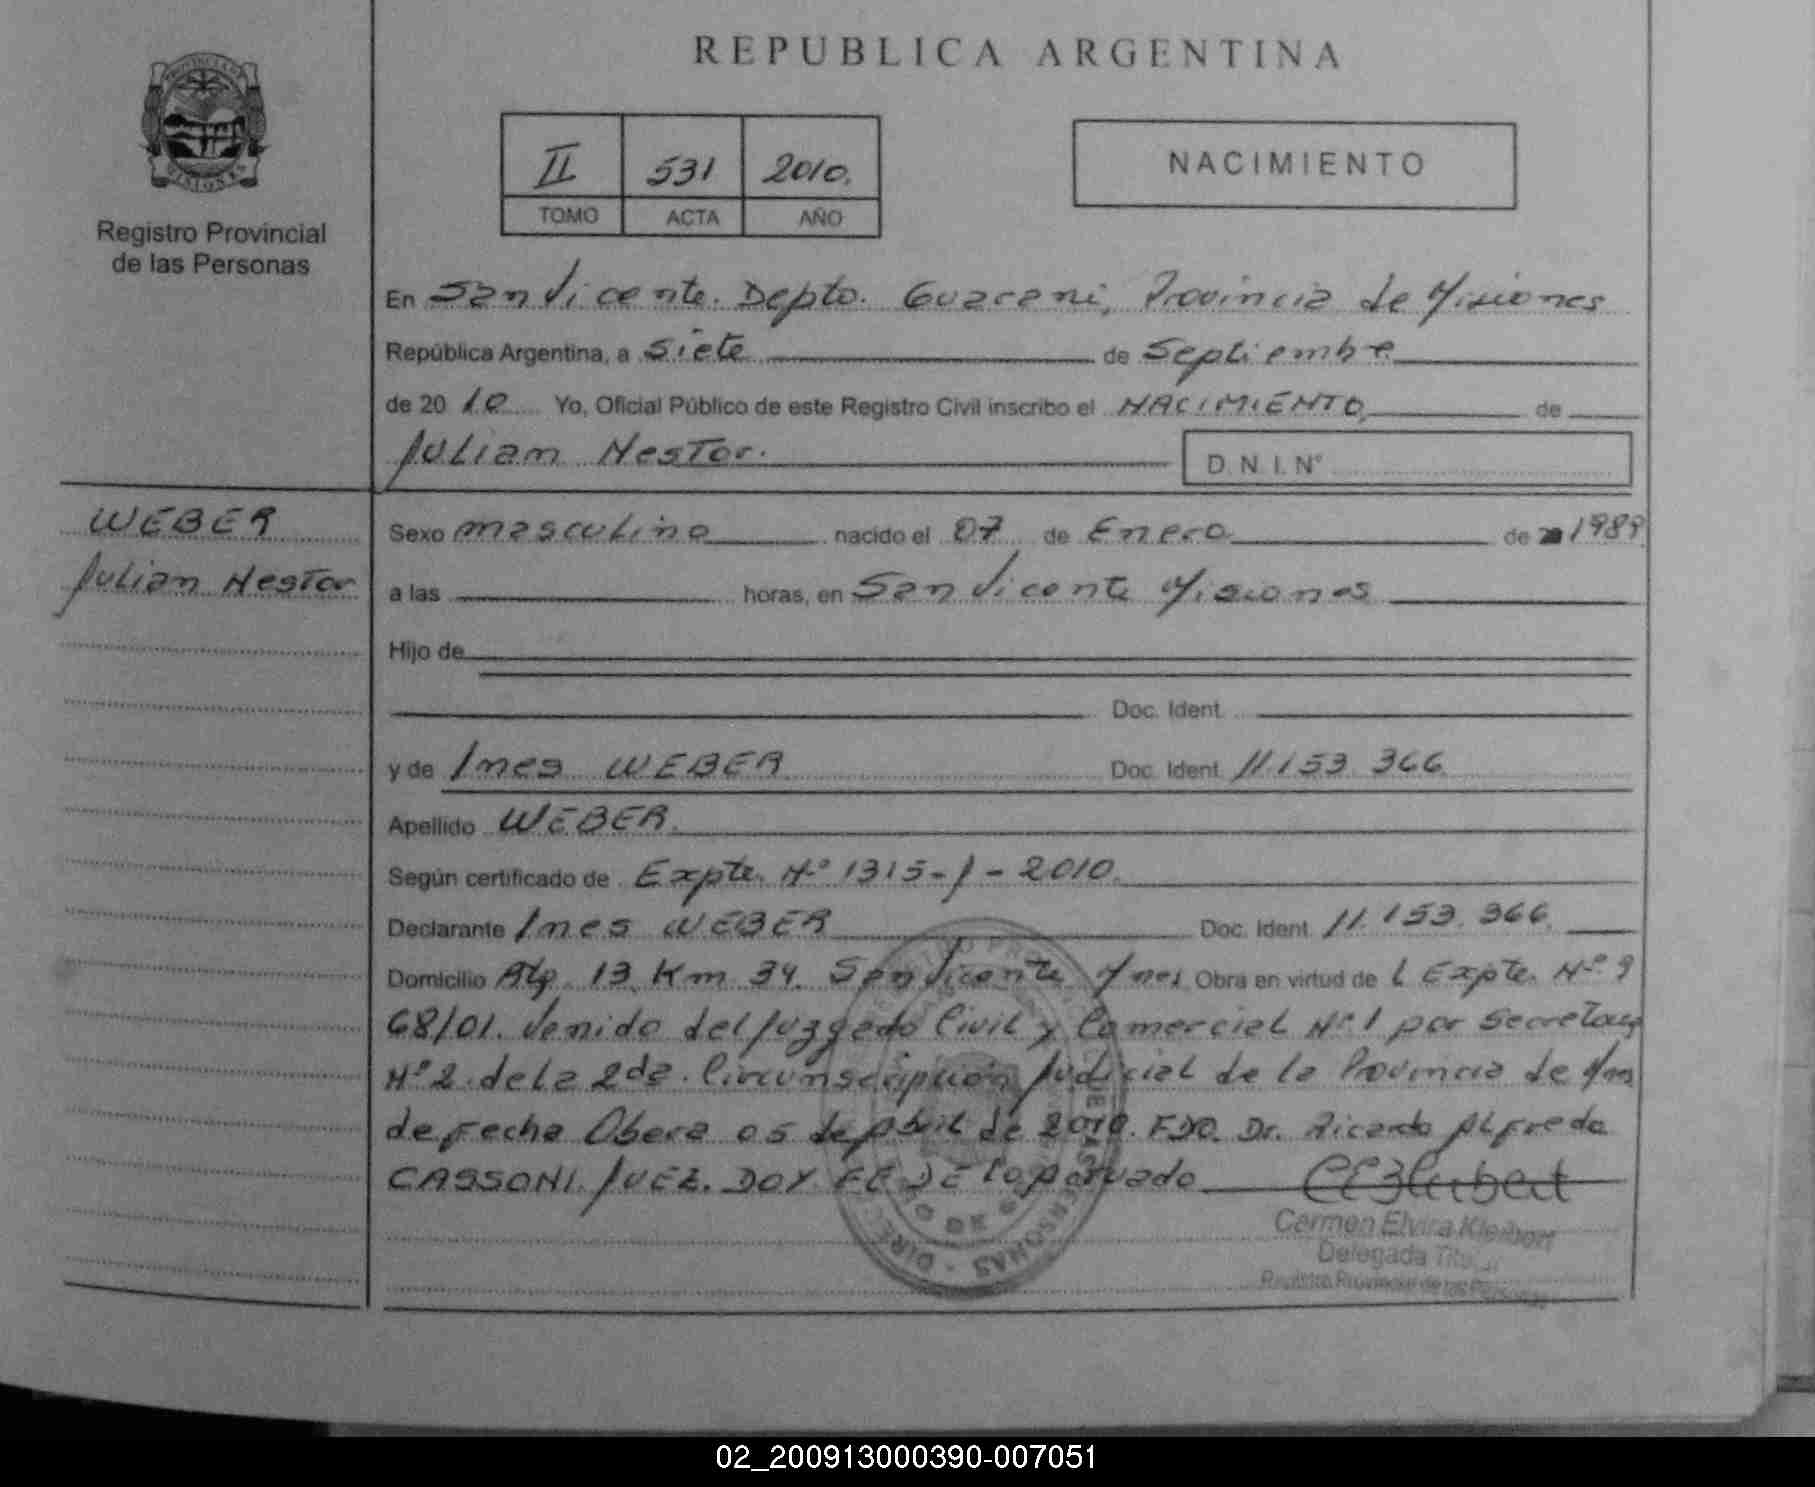 REPUBLICA ARGENTINA
PROVINCIA DE
MISIONES
Registro Provincial
de las Personas
II 531 2010.
TOMO ACTA AÑO
NACIMIENTO
En San Vicente. Depto. Guarani, Provincia de Misiones
República Argentina, a Siete de Septiembre
de 20 10 Yo, Oficial Público de este Registro Civil inscribo el NACIMIENTO, de
Julian Nestor.
D. N. I. N°
WEBER
Julian Nestor
Sexo masculino nacido el 07 de Enero de 1989
a las horas, en San Vicente Misiones
Hijo de
Doc. Ident.
y de Ines WEBER Doc. Ident. 11.153.366
Apellido WEBER.
Según certificado de Expte. Nº 1315-J-2010.
Declarante Ines WEBER Doc. Ident. 11.153.366.
Domicilio 13 Km 34. San Vicente Mnes Obra en virtud de l Expte. Nº 9
68/01. Venido del Juzgado Civil y Comercial Nº 1 por Secretaria
Nº 2 de la 2da. Circunscripción Judicial de la Provincia de Mnes
de Fecha Obera 05 de Abril de 2010. FDO. Dr. Ricardo Alfredo
CASSONI. JUEZ. DOY FE DE lo actuado
Carmen Elvira Kleibert
Delegada Titular
Registro Provincial de las Personas
02_200913000390-007051